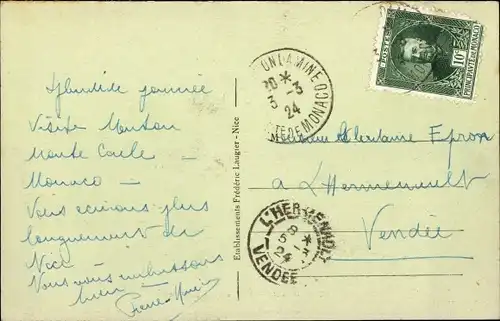 Splendide journée
Visite Menton
Monte Carle
Monaco —
Vous écrirons plus
longuement de
Nice —
Vous embrassons
bien —
Pierre
Etablissements Frédéric Laugier - Nice
CONDAMINE
20 *
3 -3
24
PTÉ DE MONACO
POSTES
10c
PRINCIPAUTE DE MONACO
Epron
a L'Hermenault
Vendée
L'HERMENAULT
8 *
5 -3
24
VENDEE